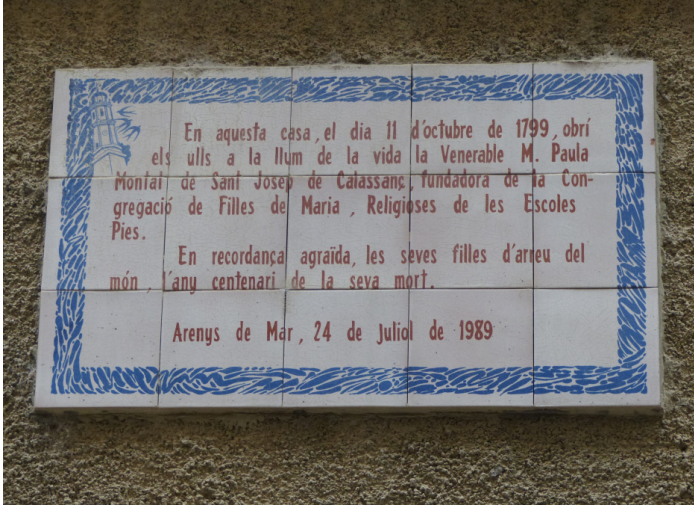 En aquesta casa, el dia 11 d'octubre de 1799, obrí
els ulls a la llum de la vida la Venerable M. Paula
Montal de Sant Josep de Calassanç, fundadora de la Con-
gregació de Filles de Maria, Religioses de les Escoles
Pies.
En recordança agraïda, les seves filles d'arreu del
món, l'any centenari de la seva mort.
Arenys de Mar, 24 de Juliol de 1989